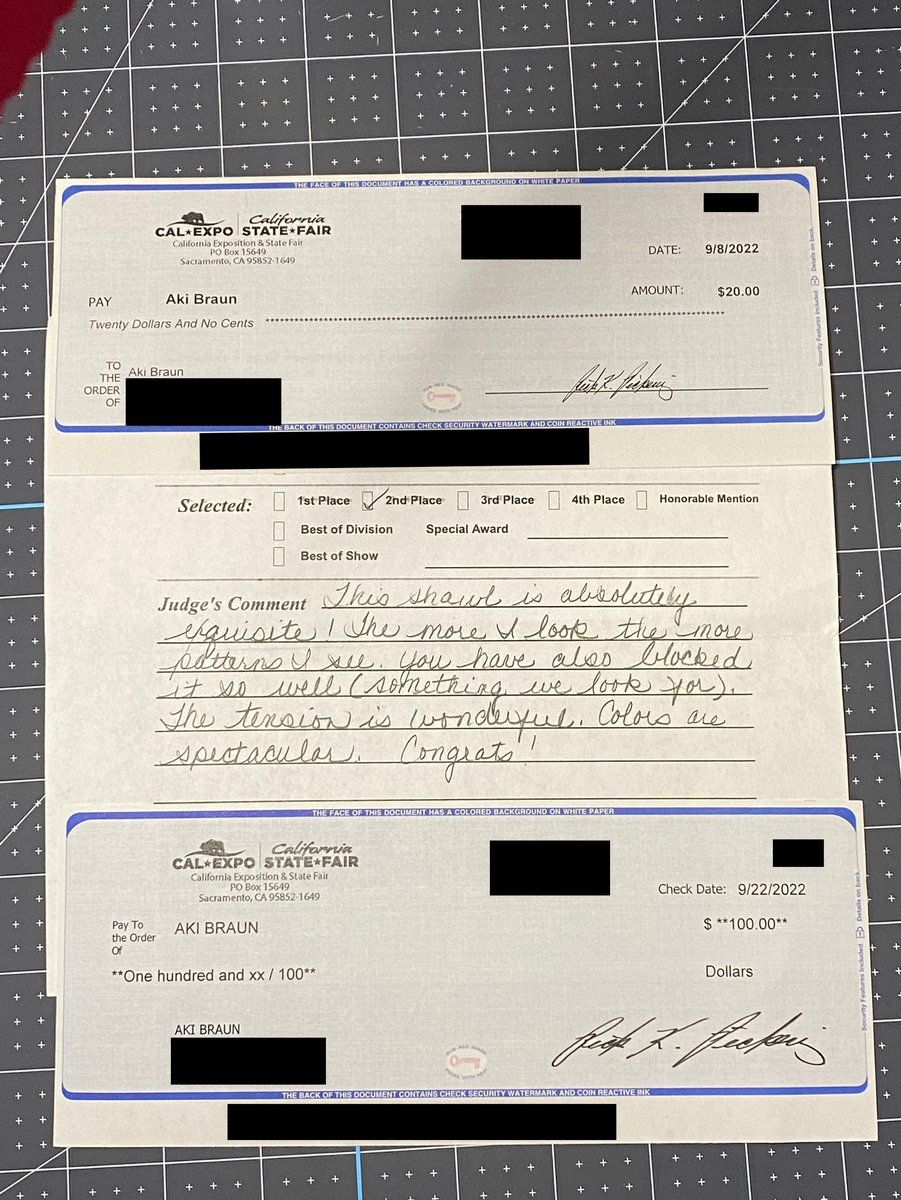 THE FACE OF THIS DOCUMENT HAS A COLORED BACKGROUND ON WHITE PAPER
CAL★EXPO California STATE★FAIR
California Exposition & State Fair
PO Box 15649
Sacramento, CA 95852-1649
DATE: 9/8/2022
PAY Aki Braun
AMOUNT: $20.00
Twenty Dollars And No Cents
TO THE ORDER OF Aki Braun
Security Features Included Details on back.
THE BACK OF THIS DOCUMENT CONTAINS CHECK SECURITY WATERMARK AND COIN REACTIVE INK
Selected: 1st Place 2nd Place 3rd Place 4th Place Honorable Mention
Best of Division Special Award
Best of Show
Judge's Comment This shawl is absolutely
exquisite! The more I look the more
patterns I see. You have also blocked
it so well (something we look for).
The tension is wonderful. Colors are
spectacular. Congrats!
THE FACE OF THIS DOCUMENT HAS A COLORED BACKGROUND ON WHITE PAPER
CAL★EXPO California STATE★FAIR
California Exposition & State Fair
PO Box 15649
Sacramento, CA 95852-1649
Check Date: 9/22/2022
Pay To the Order Of AKI BRAUN
$ **100.00**
**One hundred and xx / 100**
Dollars
AKI BRAUN
Security Features Included Details on back.
THE BACK OF THIS DOCUMENT CONTAINS CHECK SECURITY WATERMARK AND COIN REACTIVE INK